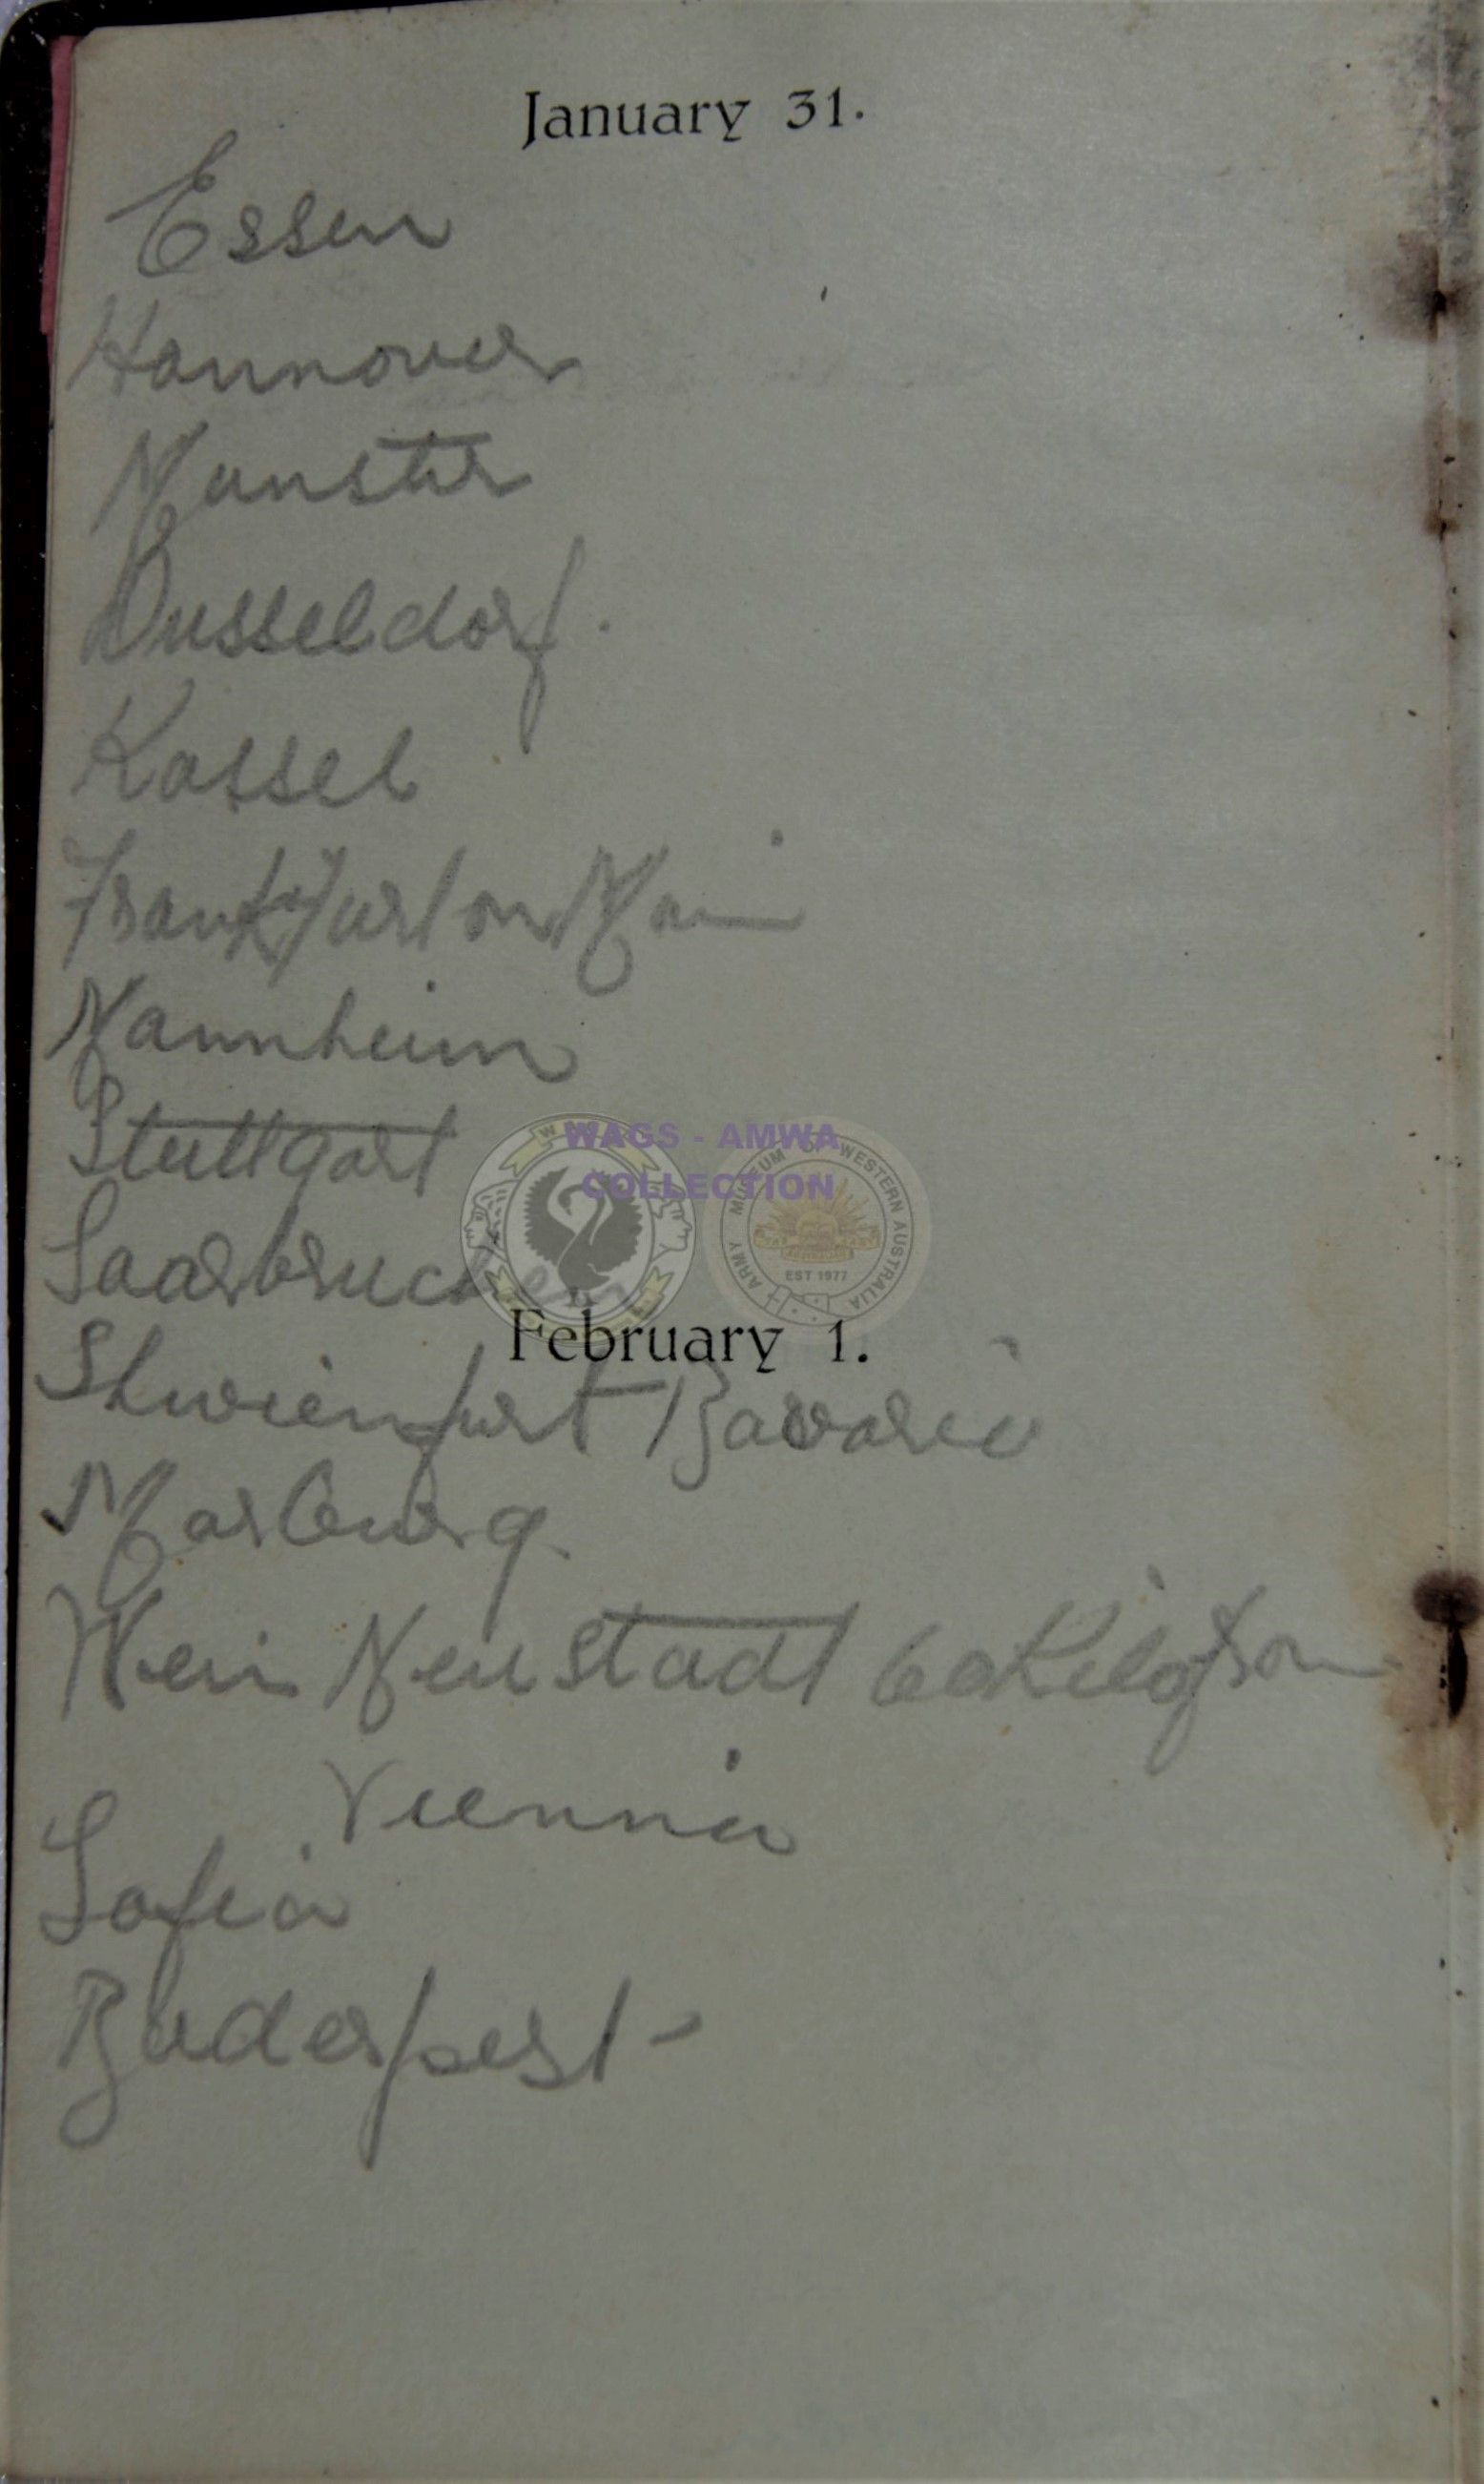 January 31.
Essen
Hannover
Munster
Dusseldorf.
Kassel
Frankfurt on Main
Mannheim
Stuttgart
WAGS - AMWA
COLLECTION
ARMY MUSEUM OF WESTERN AUSTRALIA
EST 1977
Saarbrucken
February 1.
Shwienfurt Bavaria
Marburg.
Wein Neustadt 60 Kilo from
Vienna
Sofia
Buderpest-